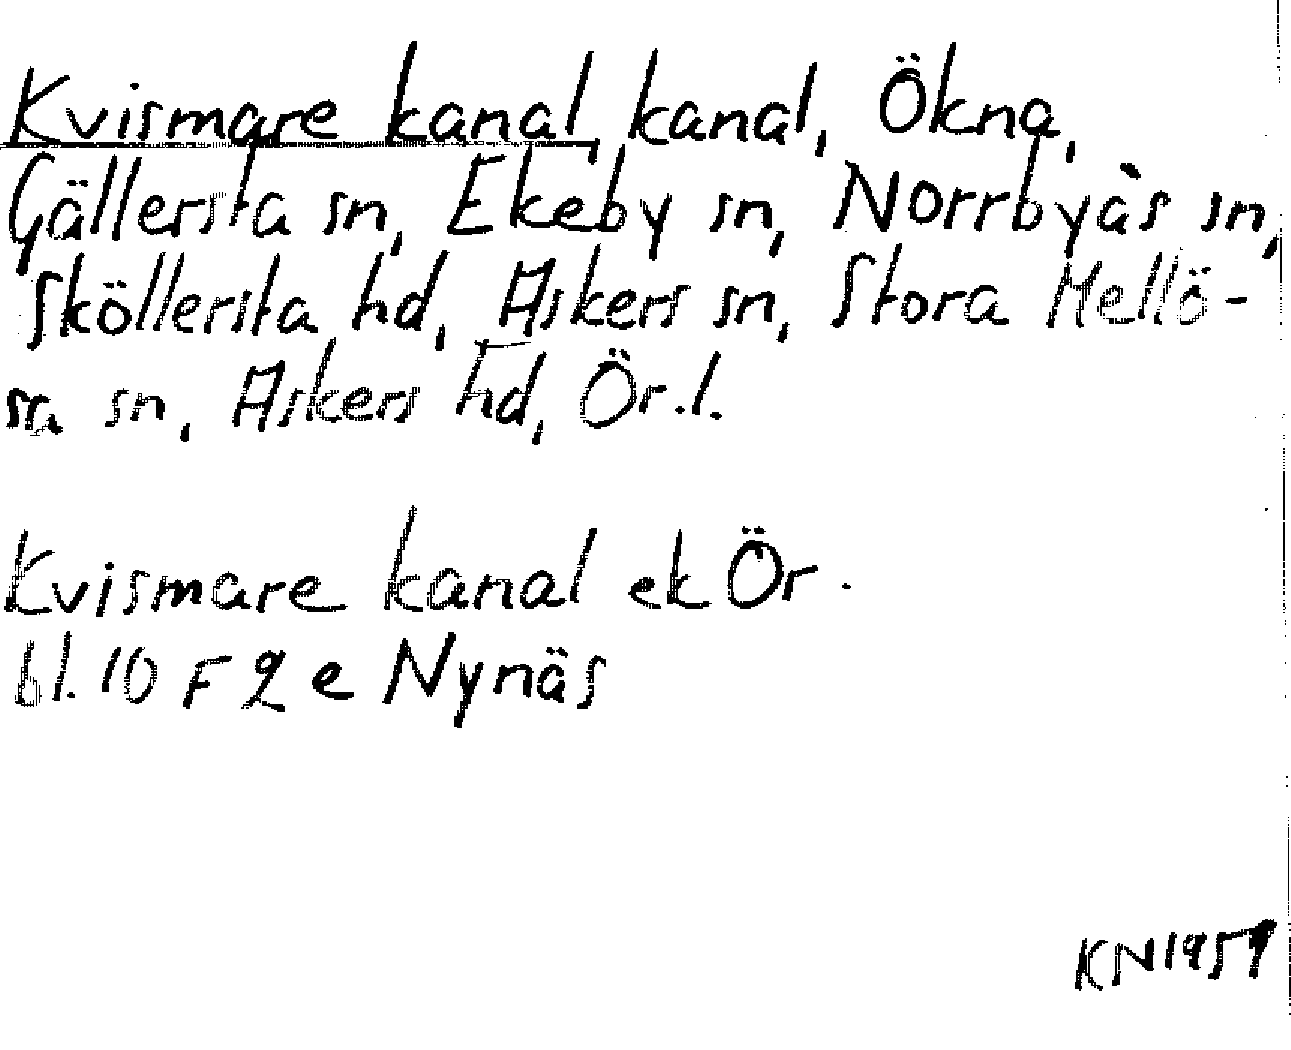 Kvismare kanal, kanal, Ökna,
Gällersta sn, Ekeby sn, Norrbyås sn,
Sköllersta hd, Askers sn, Stora Mellö-
sa sn, Askers hd, Ör.l.
Kvismare kanal ek Ör.
bl. 10 F 2 e Nynäs